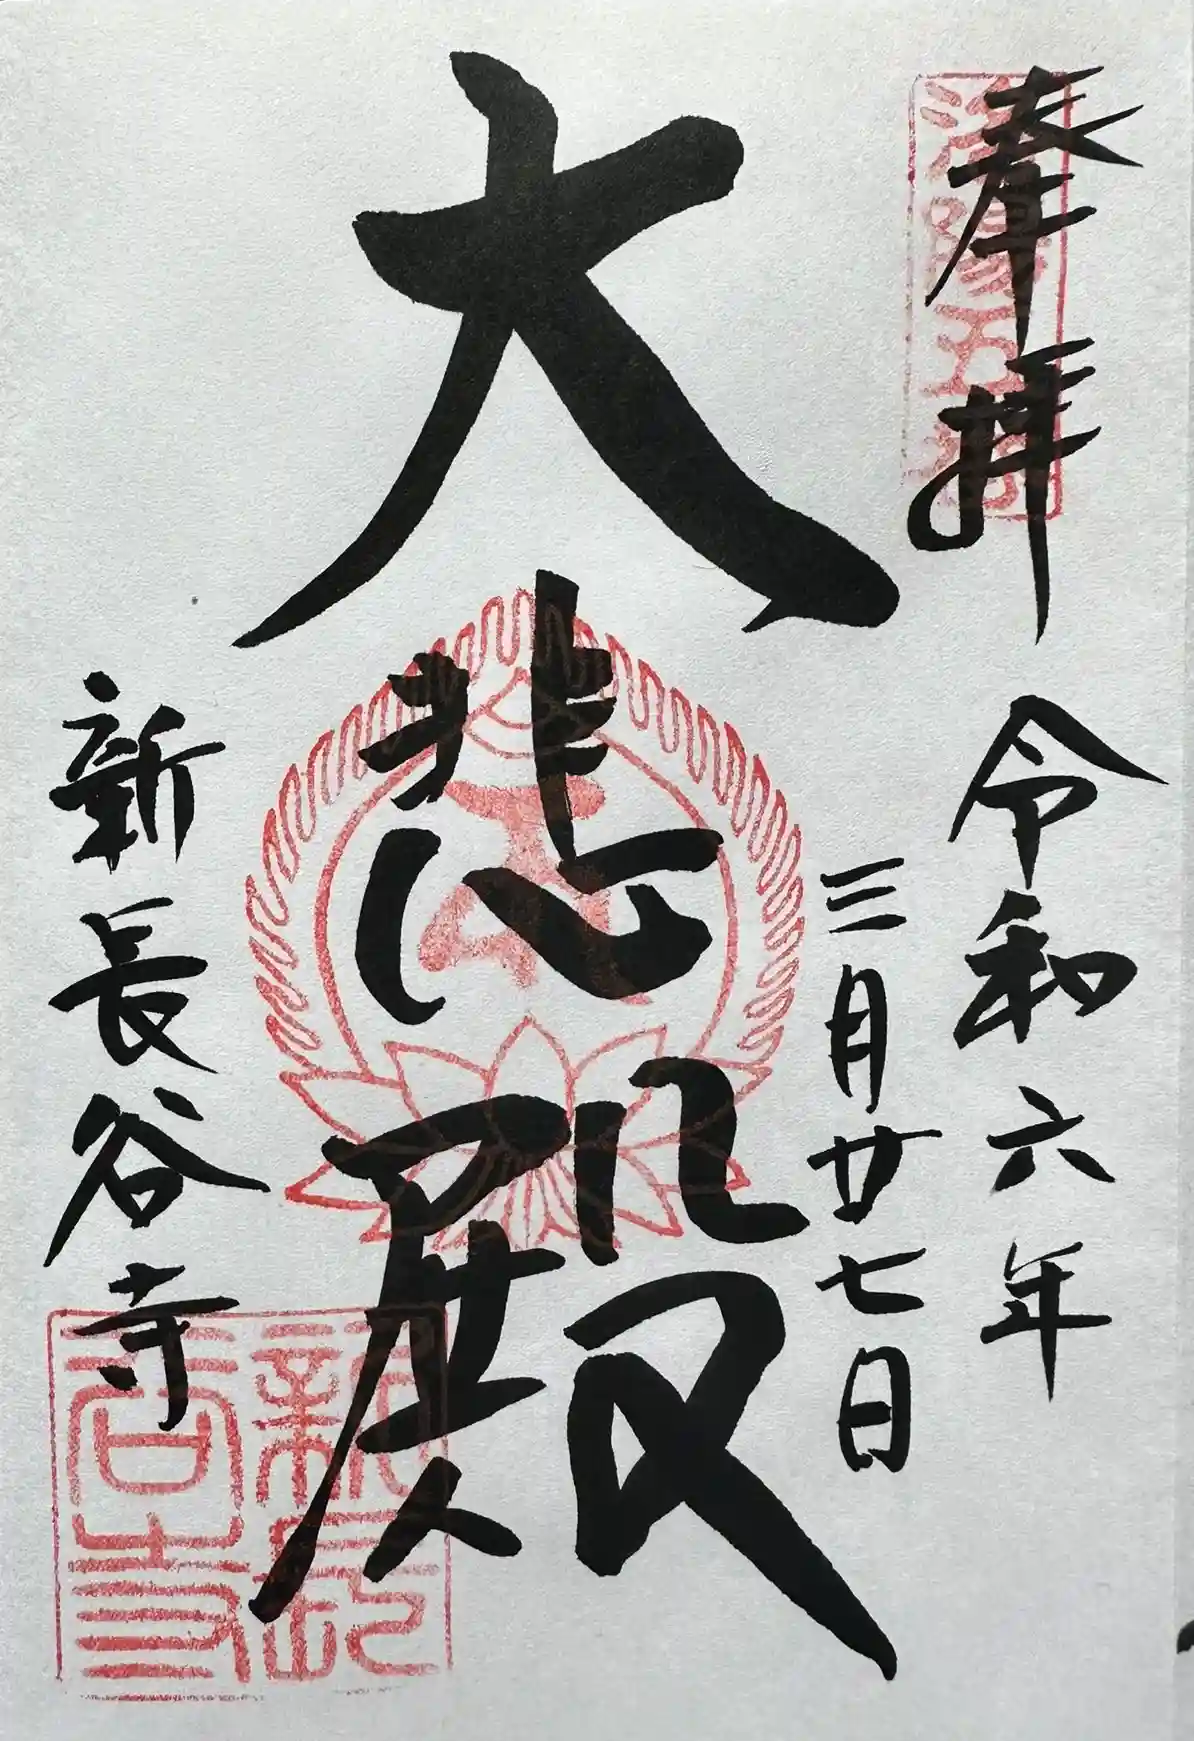 奉拝
令和六年
三月廿七日
大悲殿
新長谷寺
新長
谷寺